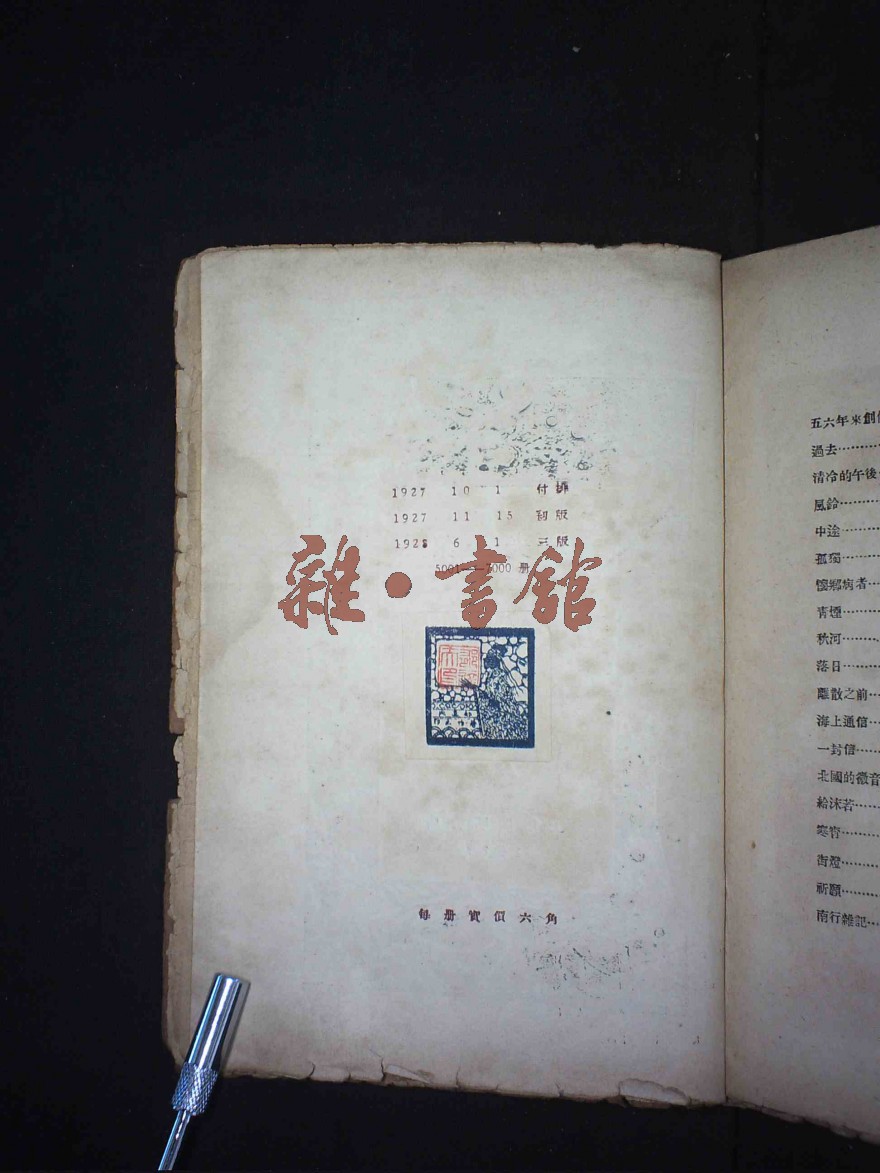 1927 10 1 付排
1927 11 15 初版
1928 6 1 三版
5001——7000 册
雜·書館
每册實價六角
五六年來創
過去
清冷的午後
風鈴
中途
孤獨
懷鄉病者
青煙
秋河
落日
離散之前
海上通信
一封信
北國的微音
給沫若
寒宵
街燈
祈願
南行雜記